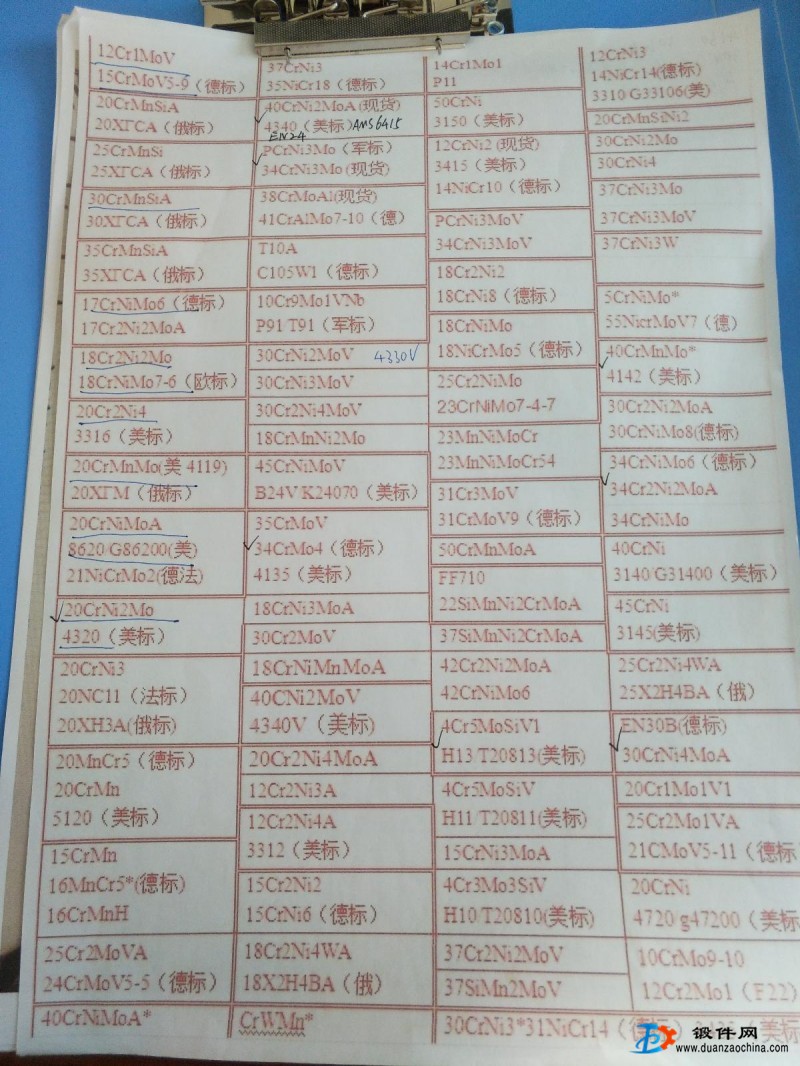 12Cr1MoV
15CrMoV5-9（德标）
20CrMnSiA
20ХГСА（俄标）
25CrMnSi
25ХГСА（俄标）
30CrMnSiA
30ХГСА（俄标）
35CrMnSiA
35ХГСА（俄标）
17CrNiMo6（德标）
17Cr2Ni2MoA
18Cr2Ni2Mo
18CrNiMo7-6（欧标）
20Cr2Ni4
3316（美标）
20CrMnMo(美 4119)
20ХГМ（俄标）
20CrNiMoA
8620/G86200(美)
21NiCrMo2(德法)
20CrNi2Mo
4320（美标）
20CrNi3
20NC11（法标）
20XH3A(俄标)
20MnCr5（德标）
20CrMn
5120（美标）
15CrMn
16MnCr5*(德标)
16CrMnH
25Cr2MoVA
24CrMoV5-5（德标）
40CrNiMoA*
37CrNi3
35NiCr18（德标）
40CrNi2MoA(现货)
4340（美标）AMS6415
EN24
PCrNi3Mo（军标）
34CrNi3Mo(现货)
38CrMoAl(现货)
41CrAlMo7-10（德）
T10A
C105W1（德标）
10Cr9Mo1VNb
P91/T91（军标）
30CrNi2MoV 4330V
30CrNi3MoV
30Cr2Ni4MoV
18CrMnNi2Mo
45CrNiMoV
B24V/K24070（美标）
35CrMoV
34CrMo4（德标）
4135（美标）
18CrNi3MoA
30Cr2MoV
18CrNiMnMoA
40CNi2MoV
4340V（美标）
20Cr2Ni4MoA
12Cr2Ni3A
12Cr2Ni4A
3312（美标）
15Cr2Ni2
15CrNi6（德标）
18Cr2Ni4WA
18X2H4BA（俄）
CrWMn*
14Cr1Mo1
P11
50CrNi
3150（美标）
12CrNi2（现货）
3415（美标）
14NiCr10（德标）
PCrNi3MoV
34CrNi3MoV
18Cr2Ni2
18CrNi8（德标）
18CrNiMo
18NiCrMo5（德标）
25Cr2NiMo
23CrNiMo7-4-7
23MnNiMoCr
23MnNiMoCr54
31Cr3MoV
31CrMoV9（德标）
50CrMnMoA
FF710
22SiMnNi2CrMoA
37SiMnNi2CrMoA
42Cr2Ni2MoA
42CrNiMo6
4Cr5MoSiV1
H13/T20813(美标)
4Cr5MoSiV
H11/T20811(美标)
15CrNi3MoA
4Cr3Mo3SiV
H10/T20810(美标)
37Cr2Ni2MoV
37SiMn2MoV
30CrNi3*31NiCr14（德标）
12CrNi3
14NiCr14(德标)
3310/G33106(美)
20CrMnSiNi2
30CrNi2Mo
30CrNi4
37CrNi3Mo
37CrNi3MoV
37CrNi3W
5CrNiMo*
55NicrMoV7（德）
40CrMnMo*
4142（美标）
30Cr2Ni2MoA
30CrNiMo8(德标)
34CrNiMo6（德标）
34Cr2Ni2MoA
34CrNiMo
40CrNi
3140/G31400（美标）
45CrNi
3145(美标)
25Cr2Ni4WA
25X2H4BA（俄）
EN30B(德标)
30CrNi4MoA
20Cr1Mo1V1
25Cr2Mo1VA
21CMoV5-11（德标
20CrNi
4720/g47200（美标
10CrMo9-10
12Cr2Mo1（F22）
锻件网
www.duanzaochina.com